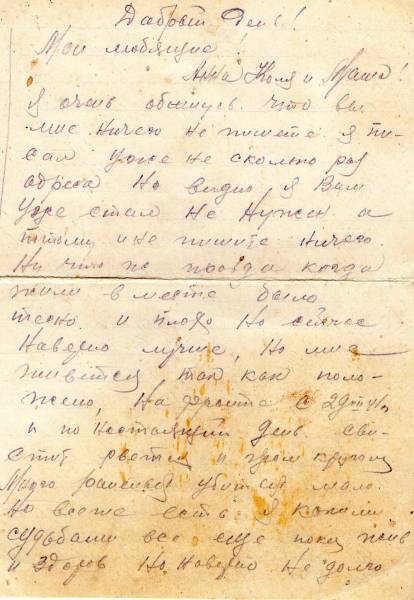 Дабрый День!
Мои любящие!
Анна Коля и Маша!
Я очень обыжусь что вы
мне ничего не пишете я пи-
сал уже не сколько раз
адреса Но видно я Вам
уже стал не нужен а
потому и не пишите ничего.
Ну что ж правда когда
жили в месте было
тесно и плохо Но сейчас
Наверно лучше, Но мне
живётся так как поло-
жено, На фронте с
и по Настоящий День сви-
стит рвётся и гром кругом
Много раненых убитых мало.
Но все же есть Я какими
судьбами все еще пока жив
и здоров Но Наверно Не долго